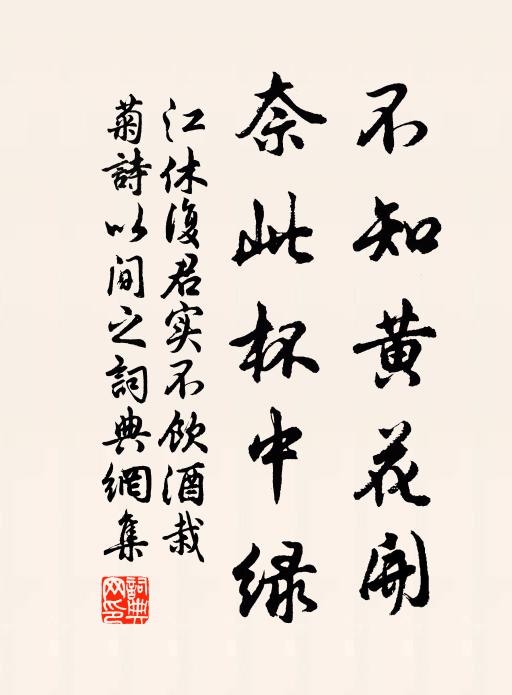 不知黄花開
奈此杯中绿
江休復君实不飲酒栽
菊詩以间之詞典網集
詞典网印